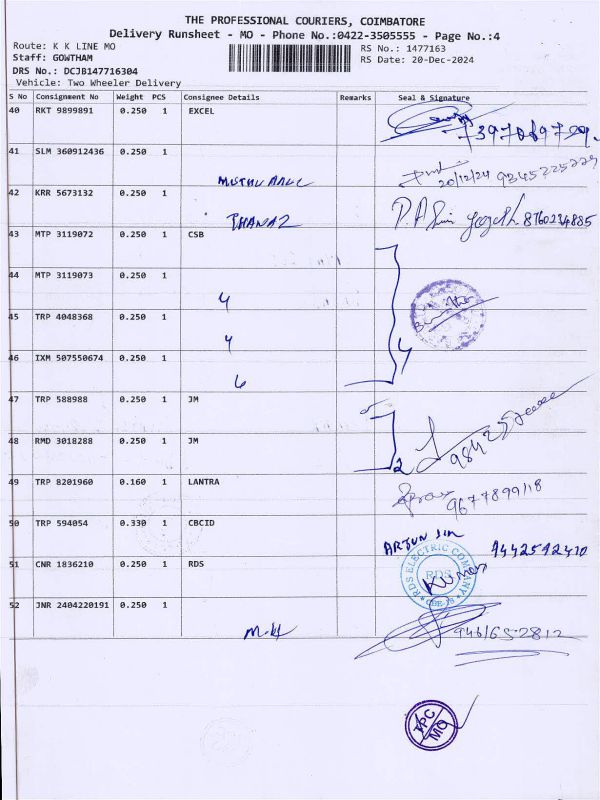 THE PROFESSIONAL COURIERS, COIMBATORE
Delivery Runsheet - MO - Phone No.:0422-3505555 - Page No.:4
Route: K K LINE MO
Staff: GOWTHAM
DRS No.: DCJB147716304
Vehicle: Two Wheeler Delivery
RS No.: 1477163
RS Date: 20-Dec-2024
S No Consignment No Weight PCS Consignee Details Remarks Seal & Signature
40 RKT 9899891 0.250 1 EXCEL
41 SLM 360912436 0.250 1
20/12/24 9345225229
42 KRR 5673132 0.250 1
8760234885
43 MTP 3119072 0.250 1 CSB
44 MTP 3119073 0.250 1
45 TRP 4048368 0.250 1
46 IXM 507550674 0.250 1
4
47 TRP 588988 0.250 1 JM
48 RMD 3018288 0.250 1 JM
2
49 TRP 8201960 0.160 1 LANTRA
9677899118
50 TRP 594054 0.330 1 CBCID
ARJUN 9442592410
51 CNR 1836210 0.250 1 RDS
RDS ELECTRIC COMPANY
RDS
Kumar
52 JNR 2404220191 0.250 1
9461652812
TPC
MO